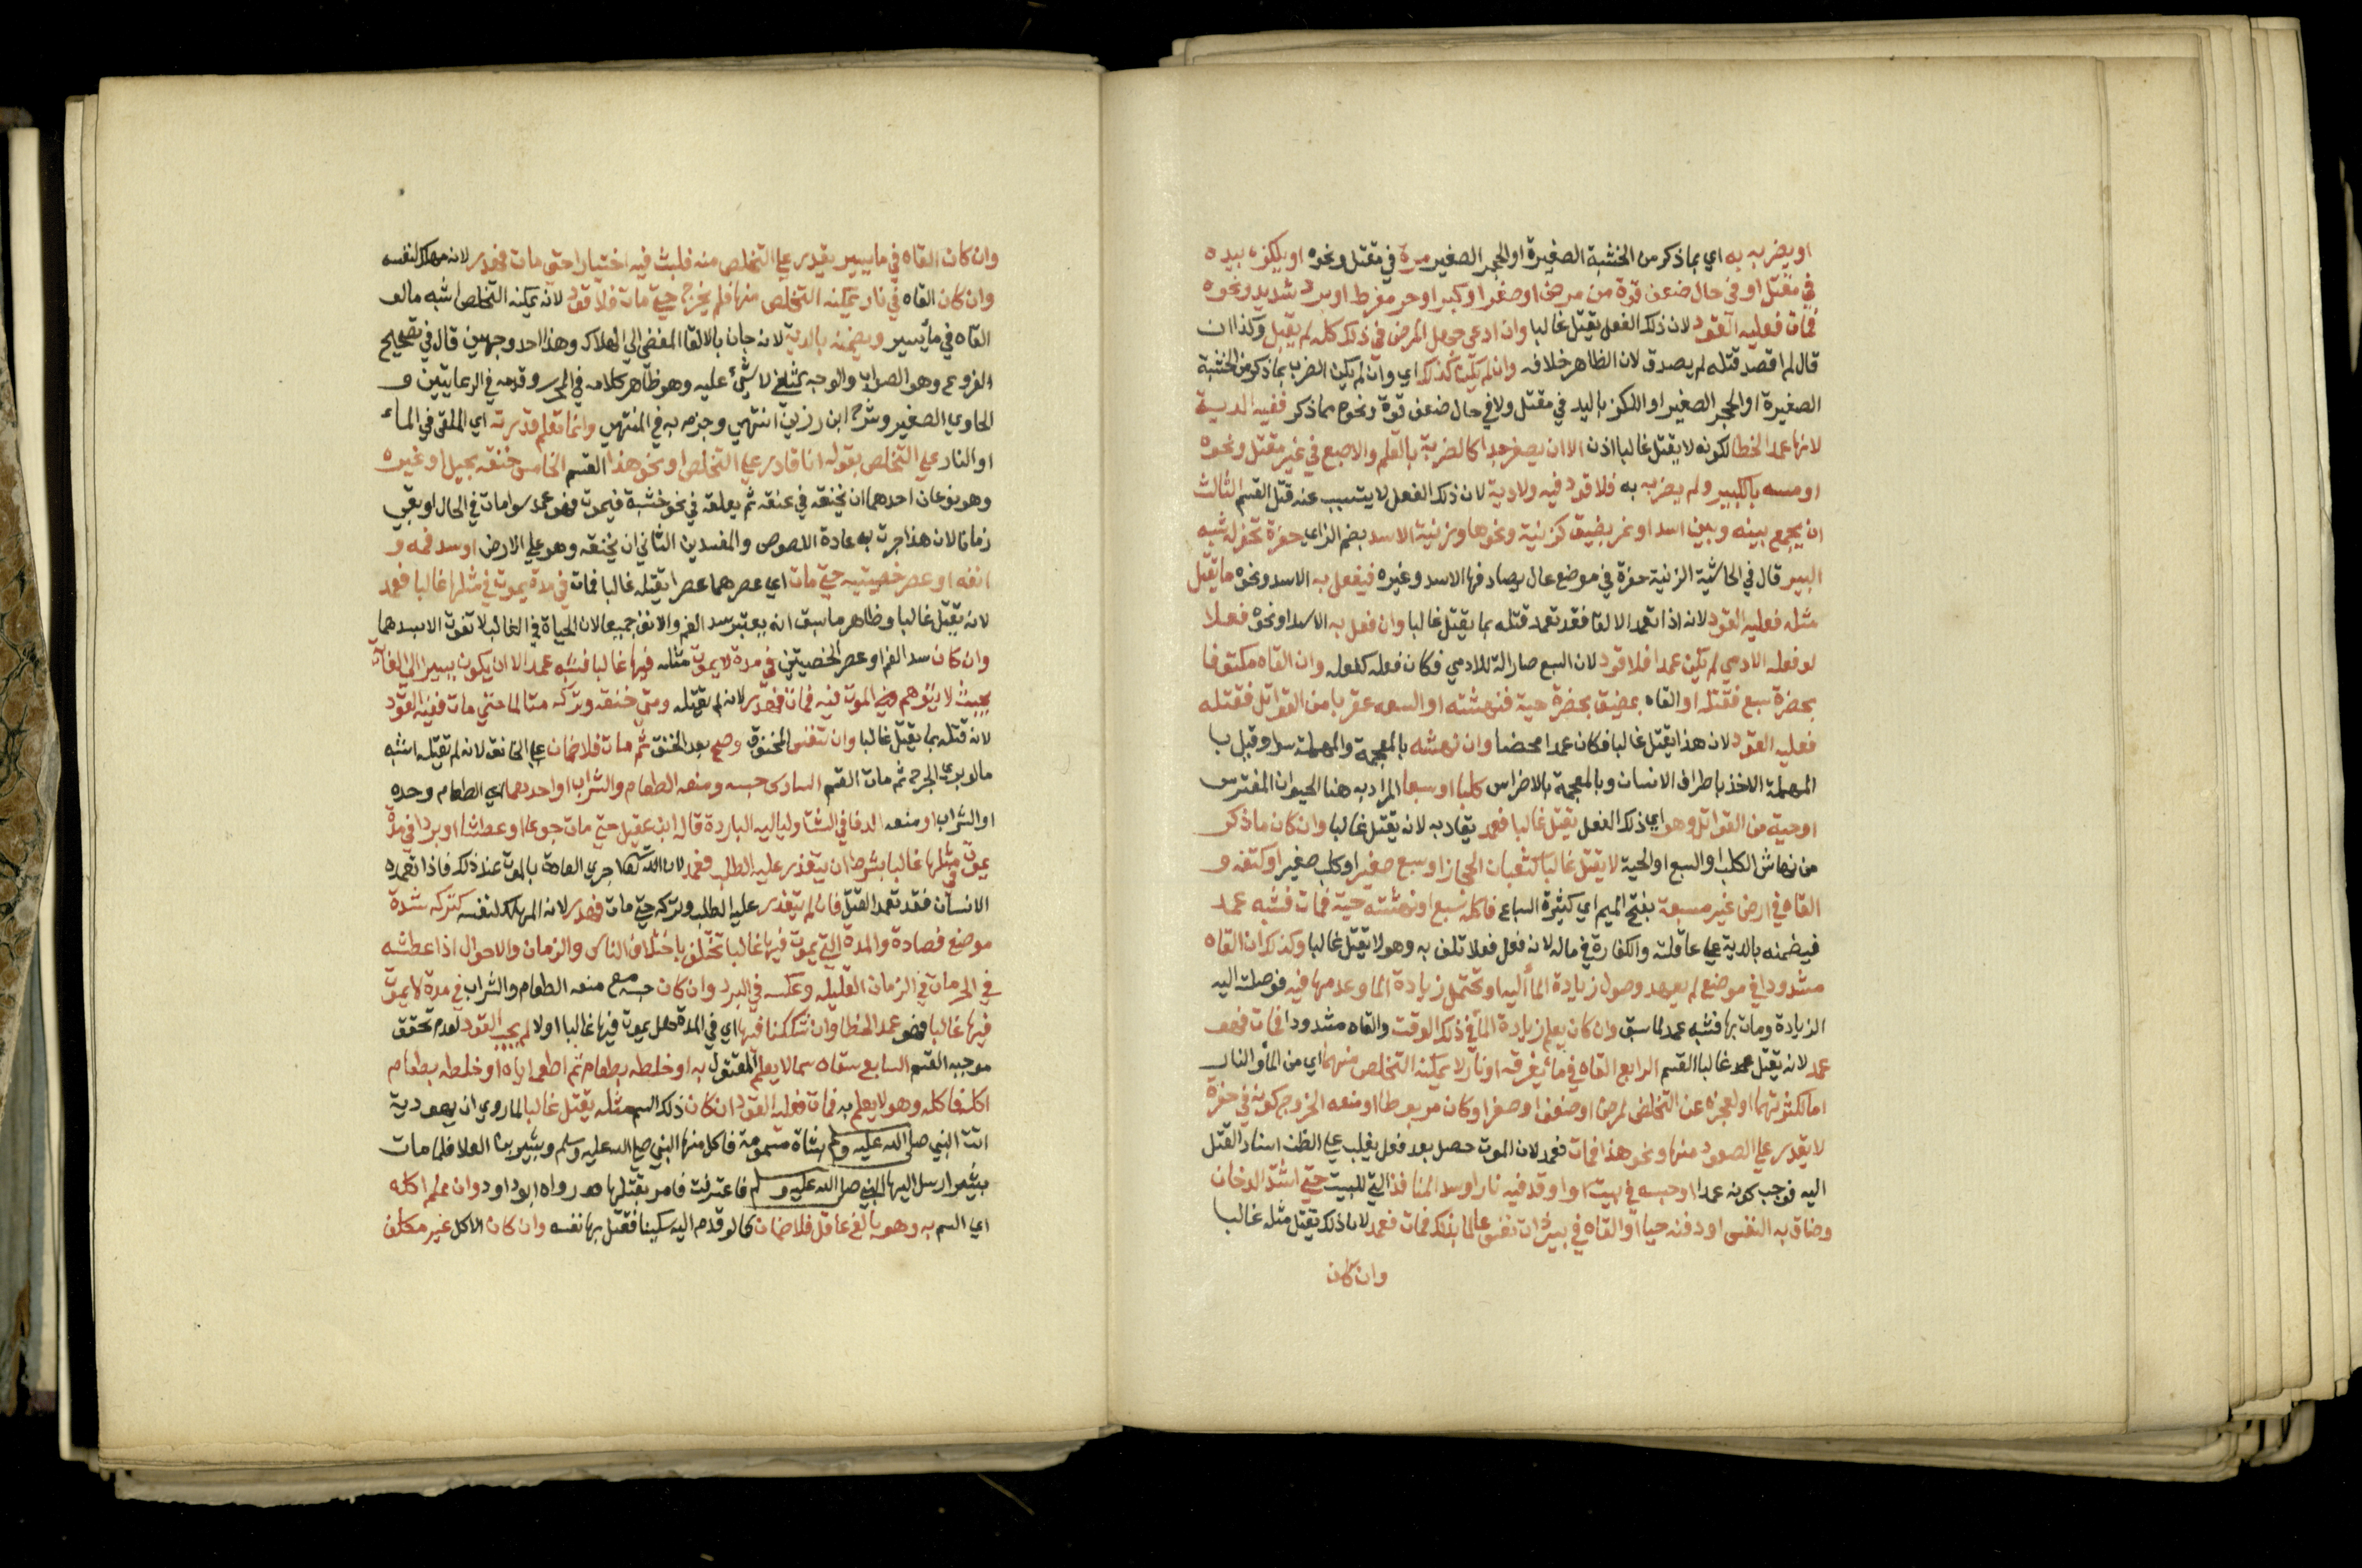 او يضربه به اي بما ذكر من الخشبة الصغيرة او الحجر الصغير مرة في مقتل ونحوه او يلكزه بيده
في مقتل او في حال ضعف قوة من مرض او صغر او كبر او حر مفرط او برد شديد ونحوه
فمات فعليه القود لان ذلك الفعل يقتل غالبا وان ادعى جهل المرض في ذلك كله لم يقبل وكذا ان
قال لم اقصد قتله لم يصدق لان الظاهر خلافه وان لم يكن كذلك اي وان لم يكن الضرب بما ذكر من الخشبة
الصغيرة او الحجر الصغير او اللكز باليد في مقتل ولا في حال ضعف قوة ونحوه مما ذكر ففيه الدية
لانها عمد الخطا لكونه لا يقتل غالبا اذن الا ان يصغر جدا كالضربة بالقلم والاصبع في غير مقتل ونحوه
او مسه بالكبير ولم يضربه به فلا قود فيه ولا دية لان ذلك الفعل لا يتسبب عنه قتل القسم الثالث
ان يجمع بينه وبين اسد او نمر بضيق كزبية ونحوها وزبية الاسد بضم الزاي حفرة تحفر له شبه
البير قال في الحاشية الزبية حفرة في موضع عال يصاد فيها الاسد وغيره فيفعل به الاسد ونحوه ما يقتل
مثله فعليه القود لانه اذا تعمد الالقا فقد تعمد قتله بما يقتل غالبا وان فعل به الاسد او نحوه فعلا
لو فعله الادمي لم يكن عمدا فلا قود لان السبع صار الة للادمي فكان فعله كفعله وان القاه مكتوفا
بحضرة سبع فقتله او القاه بمضيق بحضرة حية فنهشته او السعه عقربا من القواتل فقتله
فعليه القود لان هذا يقتل غالبا فكان عمدا محضا وان نهشه بالمعجمة والمهملة سوا وقيل ب
المهملة الاخذ باطراف الاسنان وبالمعجمة بالاضراس كلبا او سبعا المراد به هنا الحيوان المفترس
او حية من القواتل وهو اي ذلك الفعل يقتل غالبا فعمد يقاد به لانه يقتل غالبا وان كان ما ذكر
من نهاش الكلب او السبع او الحية لا يقتل غالبا كثعبان الحجاز او سبع صغير او كلب صغير او كتفه و
القاه في ارض غير مسبعة بفتح الميم اي كثيرة السباع فاكله سبع او نهشته حية فمات فشبه عمد
فيضمنه بالدية على عاقلته والكفارة في ماله لانه فعل فعلا تلف به وهو لا يقتل غالبا وكذلك ان القاه
مشدودا في موضع لم يعهد وصول زيادة الما اليه او تحتمل زيادة الما وعدمها فيه فوصلت اليه
الزيادة ومات بها فشبه عمد لما سبق وان كان يعلم زيادة الما في ذلك الوقت والقاه مشدودا فمات فهو
عمد لانه يقتل عمد غالبا القسم الرابع القاه في ماء يغرقه او نار لا يمكنه التخلص منهما اي من الما والنار
اما لكثرتهما او لعجزه عن التخلص لمرض او ضعف او صغر او كان مربوطا او منعه الخروج كونه في حفرة
لا يقدر على الصعود منها ونحو هذا فمات فعمد لان الموت حصل بعد فعل يغلب على الظن اسناد القتل
اليه فوجب كونه عمدا او حبسه في بيت او اوقد فيه نارا وسد المنافذ التي للبيت حتى اشتد الدخان
وضاق به النفس او دفنه حيا او القاه في بير ذات نفس عالما بذلك فمات فعمد لان ذلك يقتل مثله غالبا
وان كان
وان كان القاه في ما يسير يقدر على التخلص منه فلبث فيه اختيارا حتى مات فهدر لانه مهلك لنفسه
وان كان القاه في نار يمكنه التخلص منها فلم يخرج حتى مات فلا قود لانه يمكنه التخلص اشبه ما لو
القاه في ما يسير ويضمنه بالدية لانه جان بالالقا المفضي الى الهلاك وهذا احد وجهين قال في تصحيح
الفروع وهو الصواب والوجه الثاني لا شيء عليه وهو ظاهر كلامه في المحرر وقدمه في الرعايتين و
الحاوي الصغير وشرح ابن رزين انتهى وجزم به في المنتهى وانما تعلم قدرته اي الملقى في الماء
او النار على التخلص بقوله انا قادر على التخلص او نحو هذا القسم الخامس خنقه بحبل او غيره
وهو نوعان احدهما ان يخنقه في عنقه ثم يعلقه في نحو خشبة فيموت فهو عمد سوا مات في الحال او بقي
زمانا لان هذا جرت به عادة اللصوص والمفسدين الثاني ان يخنقه وهو على الارض او سد فمه و
انفه او عصر خصيتيه حتى مات اي عصرهما عصرا يقتله غالبا فمات في مدة يموت في مثلها غالبا فعمد
لانه يقتل غالبا وظاهر ما سبق انه يعتبر سد الفم والانف جميعا لان الحياة في الغالب لا تفوت الا بسدهما
وان كان سد الفم او عصر الخصيتين في مدة لا يموت مثله فيها غالبا فشبه عمد الا ان يكون يسيرا الى الغاية
بحيث لا يتوهم الموت فيه فمات فهدر لانه لم يقتله ومتى خنقه وتركه متالما حتى مات ففيه القود
لانه قتله بما يقتل غالبا وان تنفس المخنوق وصح بعد الخنق ثم مات فلا ضمان على الخانق لانه لم يقتله اشبه
ما لو بري الجرح ثم مات القسم السادس حبسه ومنعه الطعام والشراب او احدهما اي الطعام وحده
او الشراب او منعه الدفا في الشتا ولياليه الباردة قاله ابن عقيل حتى مات جوعا او عطشا او بردا في مدة
يموت في مثلها غالبا بشرط ان يتعذر عليه الطلب فعمد لان الله تعالى اجرى العادة بالموت عند ذلك فاذا تعمده
الانسان فقد تعمد القتل فان لم يتعذر عليه الطلب وتركه حتى مات فهدر لانه المهلك لنفسه كتركه شد
موضع فصاده والمدة التي يموت فيها غالبا تختلف باختلاف الناس والزمان والاحوال اذا عطشه
في الحر مات في الزمان القليل وعكسه في البرد وان كان حبسه مع منعه الطعام والشراب في مدة لا يموت
فيها غالبا فهو عمد الخطا وان شككنا فيها اي في المدة هل يموت فيها غالبا او لا لم يجب القود لعدم تحقق
موجبه القسم السابع سقاه سما لا يعلم المقتول به او خلطه بطعام ثم اطعمه اياه او خلطه بطعام
اكله فاكله وهو لا يعلم به فمات فعليه القود ان كان ذلك السم مثله يقتل غالبا لما روي ان يهودية
اتت النبي صلى الله عليه وسلم بشاة مسمومة فاكل منها النبي صلى الله عليه وسلم وبشير بن العلا فلما مات
بشير ارسل اليها النبي صلى الله عليه وسلم فاعترفت فامر بقتلها رواه ابو داود وان علم اكله
اي السم به وهو بالغ عاقل فلا ضمان كما لو قدم اليه سكينا فقتل بها نفسه وان كان الاكل غير مكلف